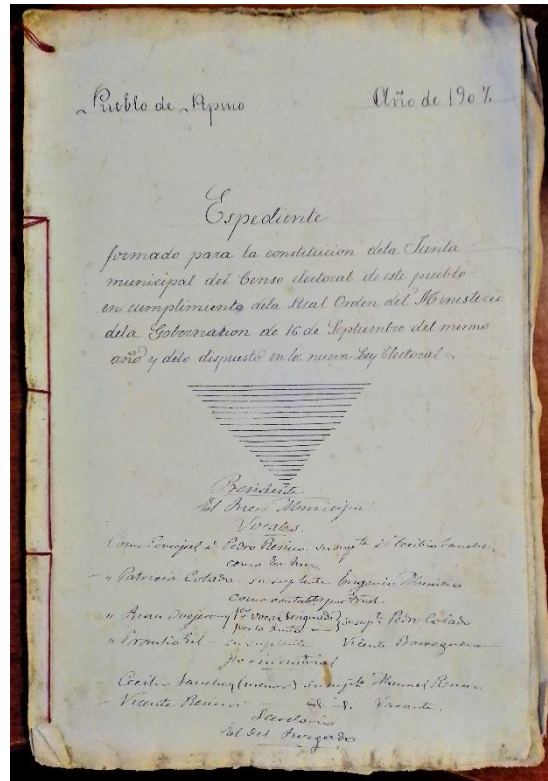 Pueblo de Pepino Año de 1907.
Espediente
formado para la constitucion dela Junta
municipal del Censo electoral de este pueblo
en cumplimiento dela Real Orden del Ministerio
dela Gobernation de 16 de Septiembre del mismo
año y delo dispuesto en la nueva Ley Electoral =
Presidente
El Juez Municipal
Vocales
Como Concejal d. Pedro Resino su supte. d. Cecilio Sanchez
como Ex Juez
" Patricio Colado su suplente Eugenio
como contribte. por
" Juan su supte. Pedro Colado
" Prontio Gil su suplente Vicente
por industrial
Cecilio Sanchez (menor) su supte. Manuel
Vicente Resino id. id. Vacante.
Secretario
El del Juzgado